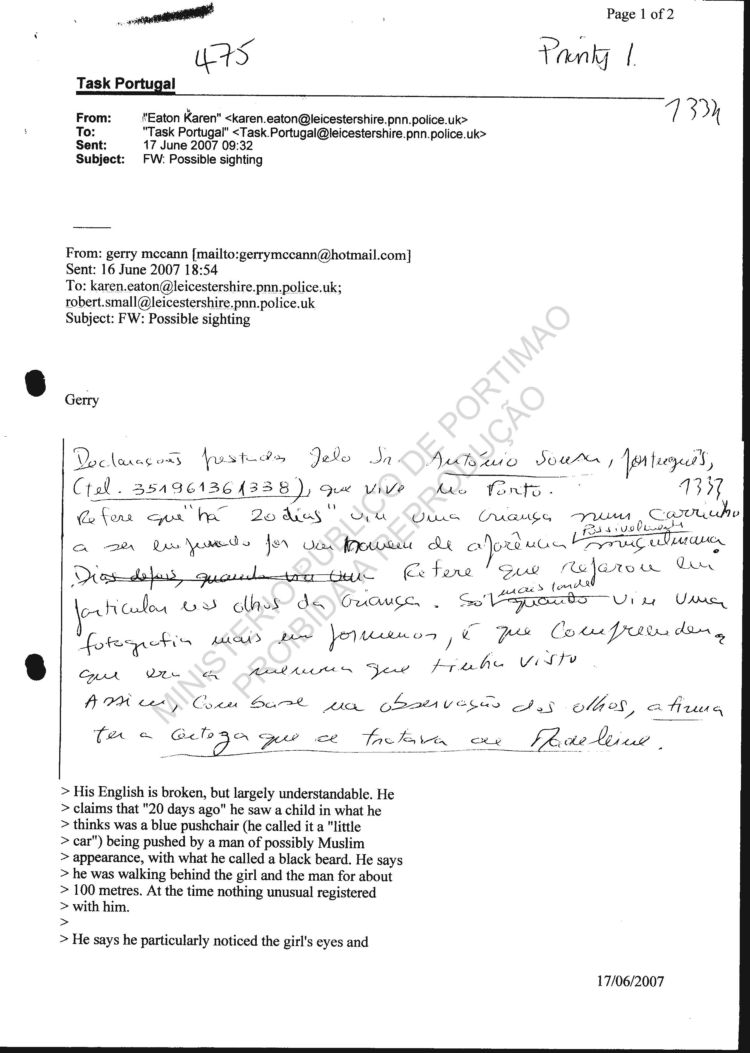 Page 1 of 2
475
Priority 1.
Task Portugal
1334
From: "Eaton Karen" <karen.eaton@leicestershire.pnn.police.uk>
To: "Task Portugal" <Task.Portugal@leicestershire.pnn.police.uk>
Sent: 17 June 2007 09:32
Subject: FW: Possible sighting
From: gerry mccann [mailto:gerrymccann@hotmail.com]
Sent: 16 June 2007 18:54
To: karen.eaton@leicestershire.pnn.police.uk;
robert.small@leicestershire.pnn.police.uk
Subject: FW: Possible sighting
MINISTERIO PUBLICO DE PORTIMAO
PROIBIDA A REPRODUÇÃO
Gerry
Declarações prestadas pelo Sr. António Sousa, português,
(tel. 351961361338), que vive no Porto.
1333
Refere que "há 20 dias" viu uma criança num carrinho
a ser empurrado por um homem de aparência possivelmente muçulmana.
Dias depois, quando Refere que reparou em
particular nos olhos da criança. Só mais tarde quando viu uma
fotografia mais em pormenor, é que compreendeu
que era a menina que tinha visto.
Assim, com base na observação dos olhos, afirma
ter a certeza que se tratava de Madeleine.
> His English is broken, but largely understandable. He
> claims that "20 days ago" he saw a child in what he
> thinks was a blue pushchair (he called it a "little
> car") being pushed by a man of possibly Muslim
> appearance, with what he called a black beard. He says
> he was walking behind the girl and the man for about
> 100 metres. At the time nothing unusual registered
> with him.
>
> He says he particularly noticed the girl's eyes and
17/06/2007